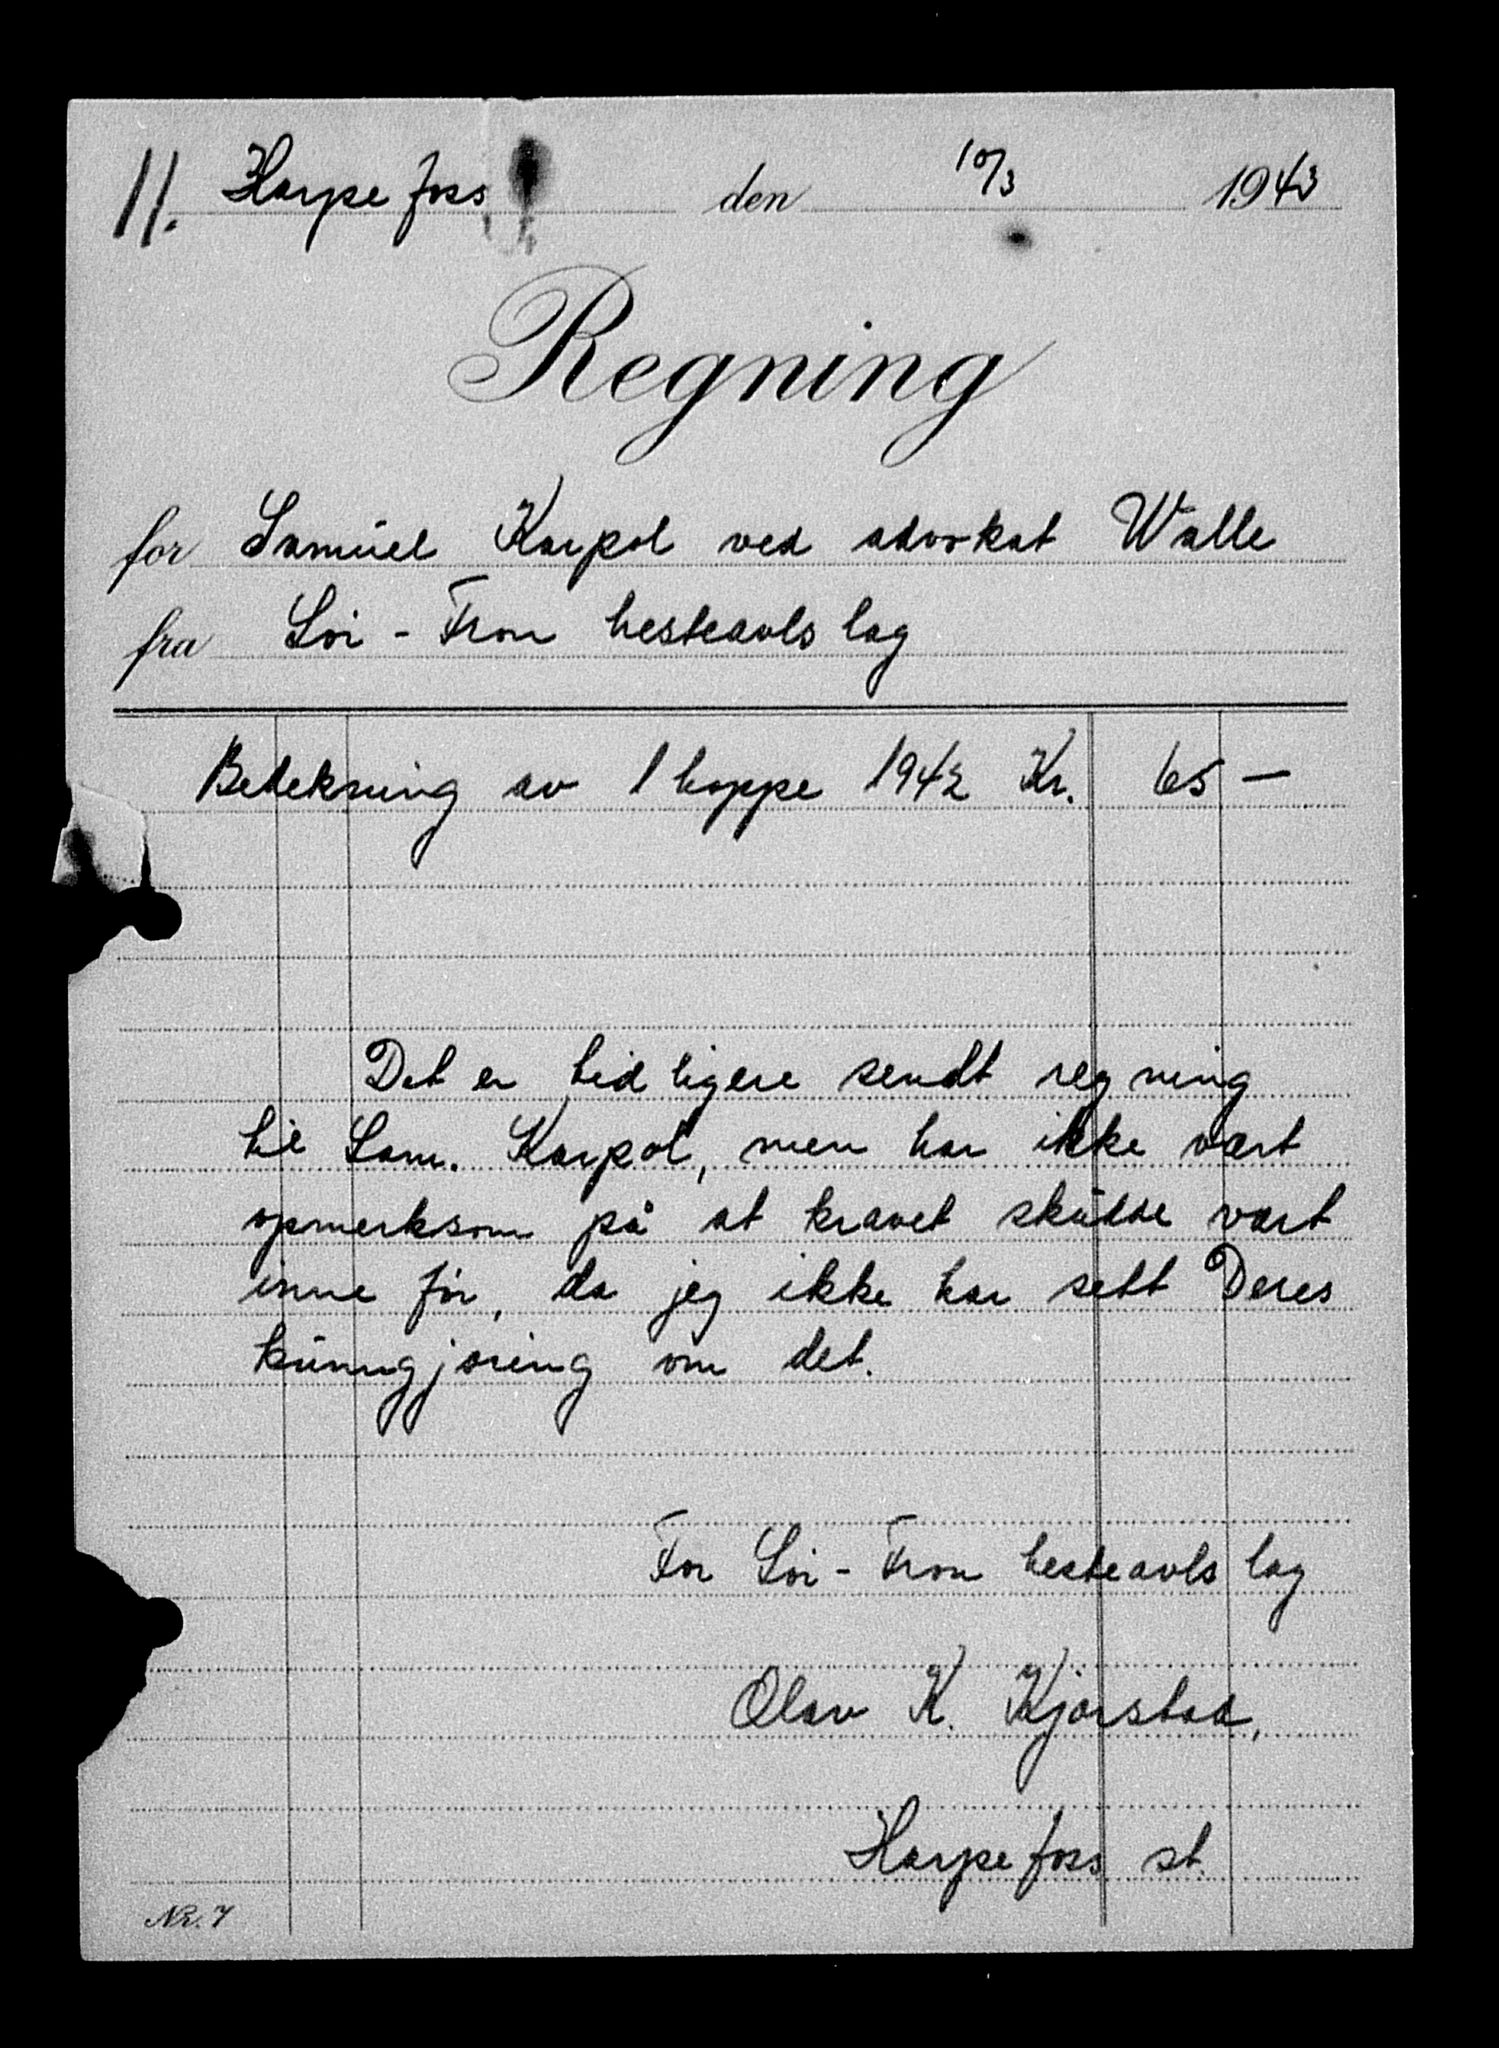 11. Harpefoss den 10/3 1943
Regning
for Samuel Karpol ved advokat Walle
fra Sör-Fron hesteavlslag
Bedekning av 1 hoppe 1942 Kr. 65 —
Det er tidligere sendt regning
til Sam. Karpol, men har ikke vært
opmerksom på at kravet skulde vært
inne för, da jeg ikke har sett Deres
kunngjöring om det.
For Sör-Fron hesteavlslag
Olav K. Kjörstad,
Harpefoss st.
Nr. 7